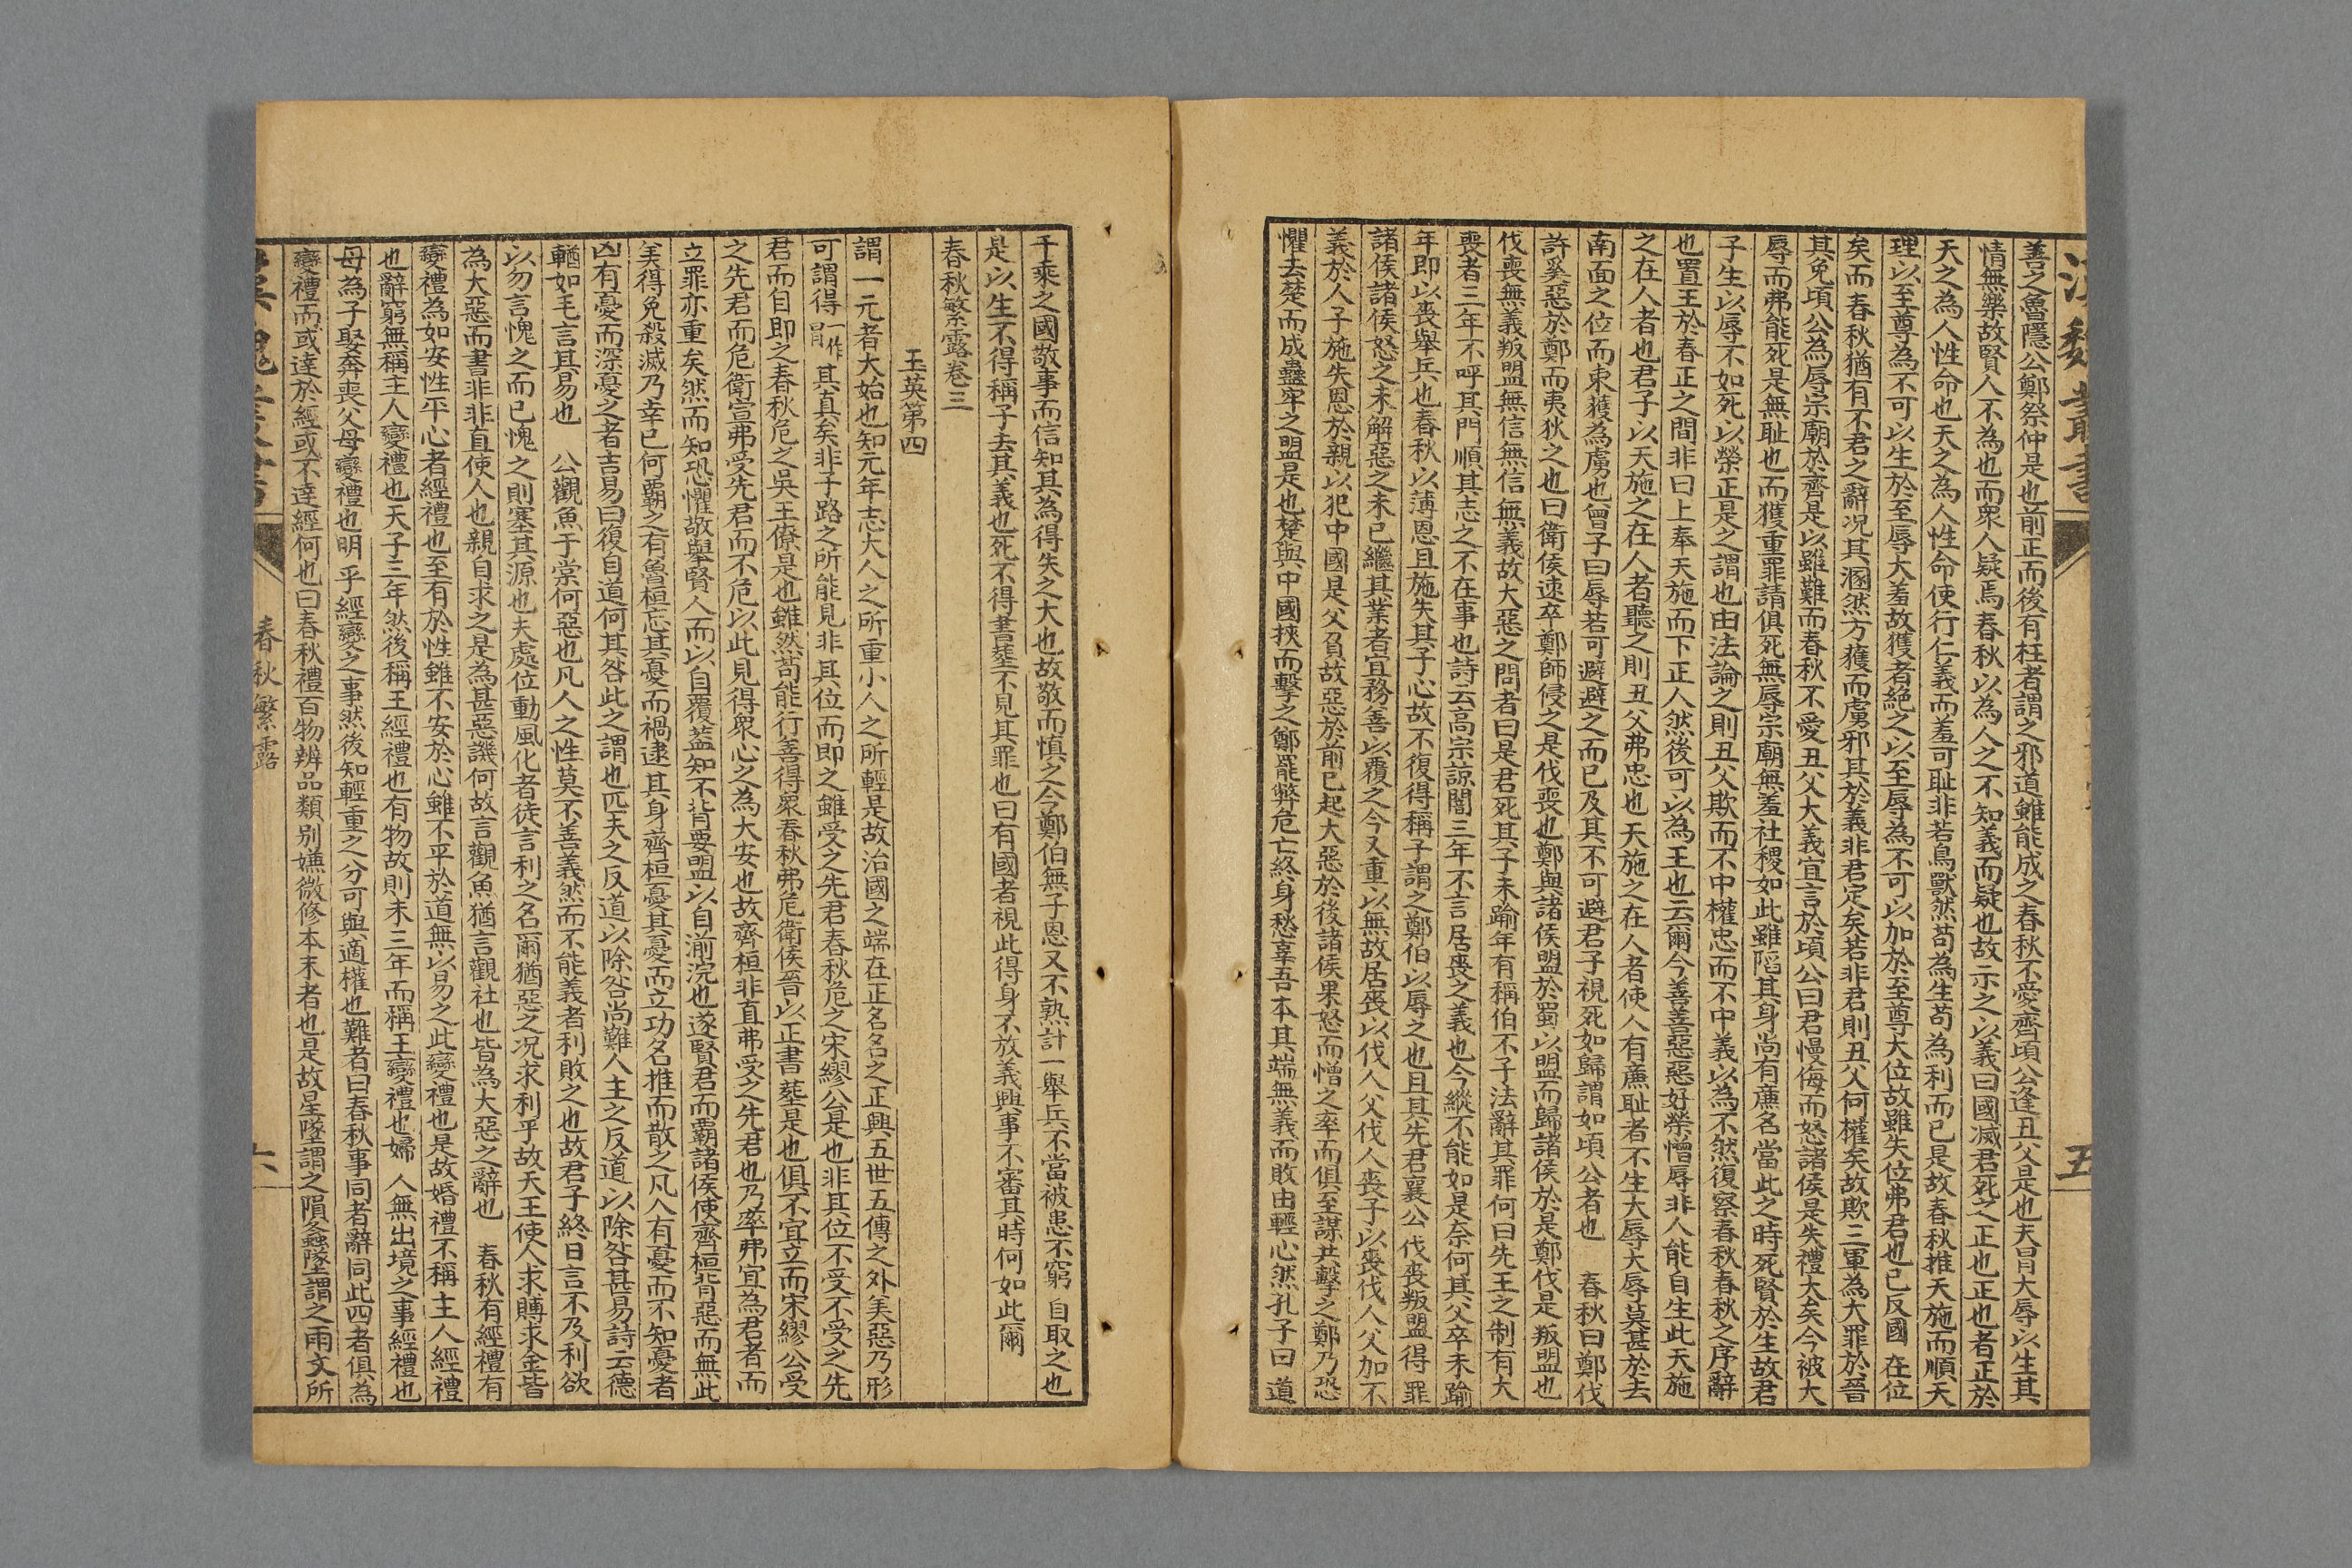 漢魏叢書
五
善之魯隱公鄭祭仲是也前正而後有枉者謂之邪道雖能成之春秋不愛齊頃公逢丑父是也夫冒大辱以生其
情無樂故賢人不為也而衆人疑焉春秋以為人之不知義而疑也故示之以義曰國滅君死之正也正也者正於
天之為人性命也天之為人性命使行仁義而羞可恥非若鳥獸然苟為生苟為利而已是故春秋推天施而順天
理以至尊為不可以生於至辱大羞故獲者絶之以至辱為不可以加於至尊大位故雖失位弗君也已反國在位
矣而春秋猶有不君之辭况其溷然方獲而虜邪其於義非君定矣若非君則丑父何權矣故欺三軍為大罪於晉
其免頃公為辱宗廟於齊是以雖難而春秋不愛丑父大義宜言於頃公曰君慢侮而怒諸侯是失禮大矣今被大
辱而弗能死是無恥也而獲重罪請俱死無辱宗廟無羞社稷如此雖陷其身尚有廉名當此之時死賢於生故君
子生以辱不如死以榮正是之謂也由法論之則丑父欺而不中權忠而不中義以為不然復察春秋春秋之序辭
也置王於春正之間非曰上奉天施而下正人然後可以為王也云爾今善善惡惡好榮憎辱非人能自生此天施
之在人者也君子以天施之在人者聽之則丑父弗忠也天施之在人者使人有廉恥者不生大辱大辱莫甚於去
南面之位而束獲為虜也曾子曰辱若可避避之而已及其不可避君子視死如歸謂如頃公者也　春秋曰鄭伐
許奚惡於鄭而夷狄之也曰衛侯速卒鄭師侵之是伐喪也鄭與諸侯盟於蜀以盟而歸諸侯於是鄭伐是叛盟也
伐喪無義叛盟無信無信無義故大惡之問者曰是君死其子未踰年有稱伯不子法辭其罪何曰先王之制有大
喪者三年不呼其門順其志之不在事也詩云高宗諒闇三年不言居喪之義也今縱不能如是奈何其父卒未踰
年即以喪舉兵也春秋以薄恩且施失其子心故不復得稱子謂之鄭伯以辱之也且其先君襄公伐喪叛盟得罪
諸侯諸侯怒之未解惡之未已繼其業者宜務善以覆之今又重以無故居喪以伐人父伐人喪子以喪伐人父加不
義於人子施失恩於親以犯中國是父負故惡於前已起大惡於後諸侯果怒而憎之率而俱至謀共擊之鄭乃恐
懼去楚而成蠱牢之盟是也楚與中國挾而擊之鄭罷弊危亡終身愁辜吾本其端無義而敗由輕心然孔子曰道
千乘之國敬事而信知其為得失之大也故敬而慎之今鄭伯無子恩又不熟計一舉兵不當被患不窮自取之也
是以生不得稱子去其義也死不得書葬不見其罪也曰有國者視此得身不放義興事不審其時何如此爾
春秋繁露卷三
玉英第四
謂一元者大始也知元年志大人之所重小人之所輕是故治國之端在正名名之正興五世五傳之外美惡乃形
可謂得一作冐其真矣非子路之所能見非其位而即之雖受之先君春秋危之宋繆公是也非其位不受不受之先
君而自即之春秋危之吳王僚是也雖然苟能行善得衆春秋弗危衛侯晉以正書葬是也俱不宜立而宋繆公受
之先君而危衛宣弗受先君而不危以此見得衆心之為大安也故齊桓非直弗受之先君也乃率弗宜為君者而
立罪亦重矣然而知恐懼敬舉賢人而以自覆蓋知不背要盟以自湔浣也遂賢君而霸諸侯使齊桓背惡而無此
美得免殺滅乃幸已何霸之有魯桓忘其憂而禍逮其身齊桓憂其憂而立功名推而散之凡人有憂而不知憂者
凶有憂而深憂之者吉易曰復自道何其咎此之謂也匹夫之反道以除咎尚難人主之反道以除咎甚易詩云德
輶如毛言其易也　公觀魚于棠何惡也凡人之性莫不善義然而不能義者利敗之也故君子終日言不及利欲
以勿言愧之而已愧之則塞其源也夫處位動風化者徒言利之名爾猶惡之况求利乎故天王使人求賻求金皆
為大惡而書非非直使人也親自求之是為甚惡譏何故言觀魚猶言觀社也皆為大惡之辭也　春秋有經禮有
變禮為如安性平心者經禮也至有於性雖不安於心雖不平於道無以易之此變禮也是故婚禮不稱主人經禮
也辭窮無稱主人變禮也天子三年然後稱王經禮也有物故則未三年而稱王變禮也婦人無出境之事經禮也
母為子娶奔喪父母變禮也明乎經變之事然後知輕重之分可與適權也難者曰春秋事同者辭同此四者俱為
變禮而或達於經或不達經何也曰春秋禮百物辨品類别嫌微修本末者也是故星墜謂之隕螽墜謂之雨文所
漢魏叢書
春秋繁露
六